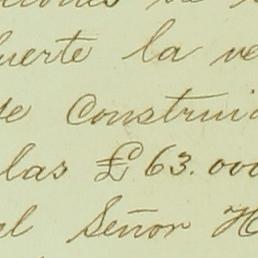 uerte la ve
de Construi
las £63.000
al Señor H